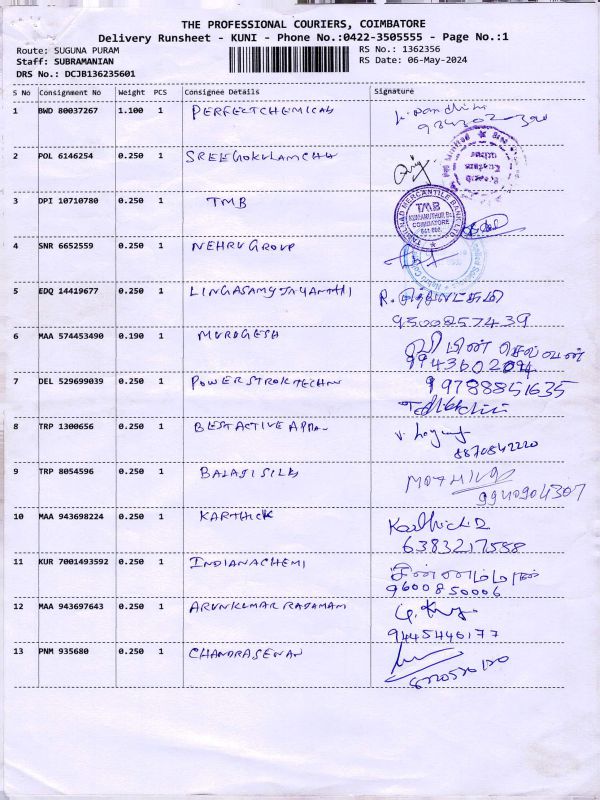 THE PROFESSIONAL COURIERS, COIMBATORE
Delivery Runsheet - KUNI - Phone No.:0422-3505555 - Page No.:1
Route: SUGUNA PURAM RS No.: 1362356
Staff: SUBRAMANIAN RS Date: 06-May-2024
DRS No.: DCJB136235601
S No Consignment No Weight PCS Consignee Details Signature
1 BWD 80037267 1.100 1 PERFECTCHEMICAL
2 POL 6146254 0.250 1 SREEGOKULAMCHH
3 DPI 10710780 0.250 1 TMB
TAMILNAD MERCANTILE BANK LTD
TMB
COIMBATORE
4 SNR 6652559 0.250 1 NEHRU GROUP
5 EDQ 14419677 0.250 1 LINGASAMYJAYANTHI
95008257439
6 MAA 574453490 0.190 1 MURUGESH
9943602094
7 DEL 529699039 0.250 1 POWERSTROKTECHN
99788851635
8 TRP 1300656 0.250 1 BESTACTIVE
8870542220
9 TRP 8054596 0.250 1 BALAJI SILK
9940904307
10 MAA 943698224 0.250 1 KARTHICK
Karthick R
6383217558
11 KUR 7001493592 0.250 1 INDIANACHEMI
9600850006
12 MAA 943697643 0.250 1 ARUNKUMAR RAJAMAM
9445446177
13 PNM 935680 0.250 1 CHANDRASENAN